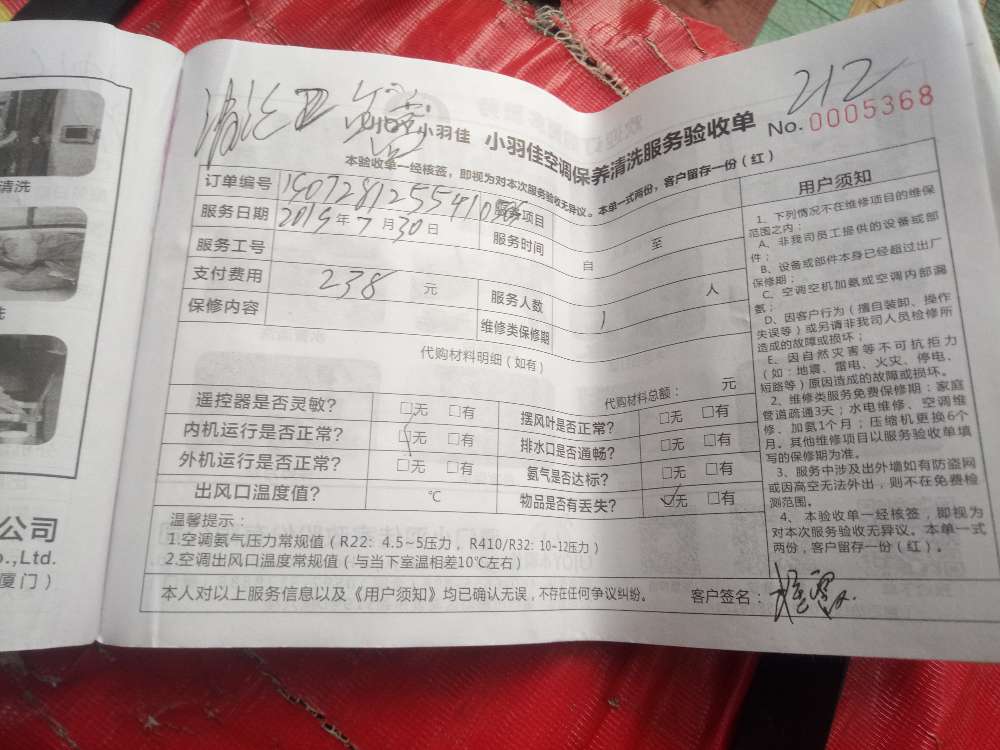 清洗
洗
公司
o.,Ltd.
厦门）
212
小羽佳 小羽佳空调保养清洗服务验收单 No. 0005368
本验收单一经核签，即视为对本次服务验收无异议。本单一式两份，客户留存一份（红）
订单编号 服务项目
服务日期 2019年7月30日 服务时间 自 至
服务工号
支付费用 238 元 服务人数 1 人
保修内容 维修类保修期
代购材料明细（如有）
代购材料总额： 元
遥控器是否灵敏？ □无 □有 摆风叶是否正常？ □无 □有
内机运行是否正常？ □无 □有 排水口是否通畅？ □无 □有
外机运行是否正常？ □无 □有 氨气是否达标？ □无 □有
出风口温度值？ ℃ 物品是否有丢失？ ☑无 □有
温馨提示：
1.空调氨气压力常规值（R22：4.5~5压力，R410/R32：10-12压力）
2.空调出风口温度常规值（与当下室温相差10℃左右）
本人对以上服务信息以及《用户须知》均已确认无误，不存在任何争议纠纷。 客户签名：
用户须知
1、下列情况不在维修项目的维保
范围之内：
A、非我司员工提供的设备或部
件；
B、设备或部件本身已经超过出厂
保修期；
C、空调空机加氨或空调内部漏
氨；
D、因客户行为（擅自装卸、操作
失误等）或另请非我司人员检修所
造成的故障或损坏；
E、因自然灾害等不可抗拒力
（如：地震、雷电、火灾、停电、
短路等）原因造成的故障或损坏。
2、维修类服务免费保修期：家庭
管道疏通3天；水电维修、空调维
修、加氨1个月；压缩机更换6个
月。其他维修项目以服务验收单填
写的保修期为准。
3、服务中涉及出外墙如有防盗网
或因高空无法外出，则不在免费检
测范围。
4、本验收单一经核签，即视为
对本次服务验收无异议。本单一式
两份，客户留存一份（红）。